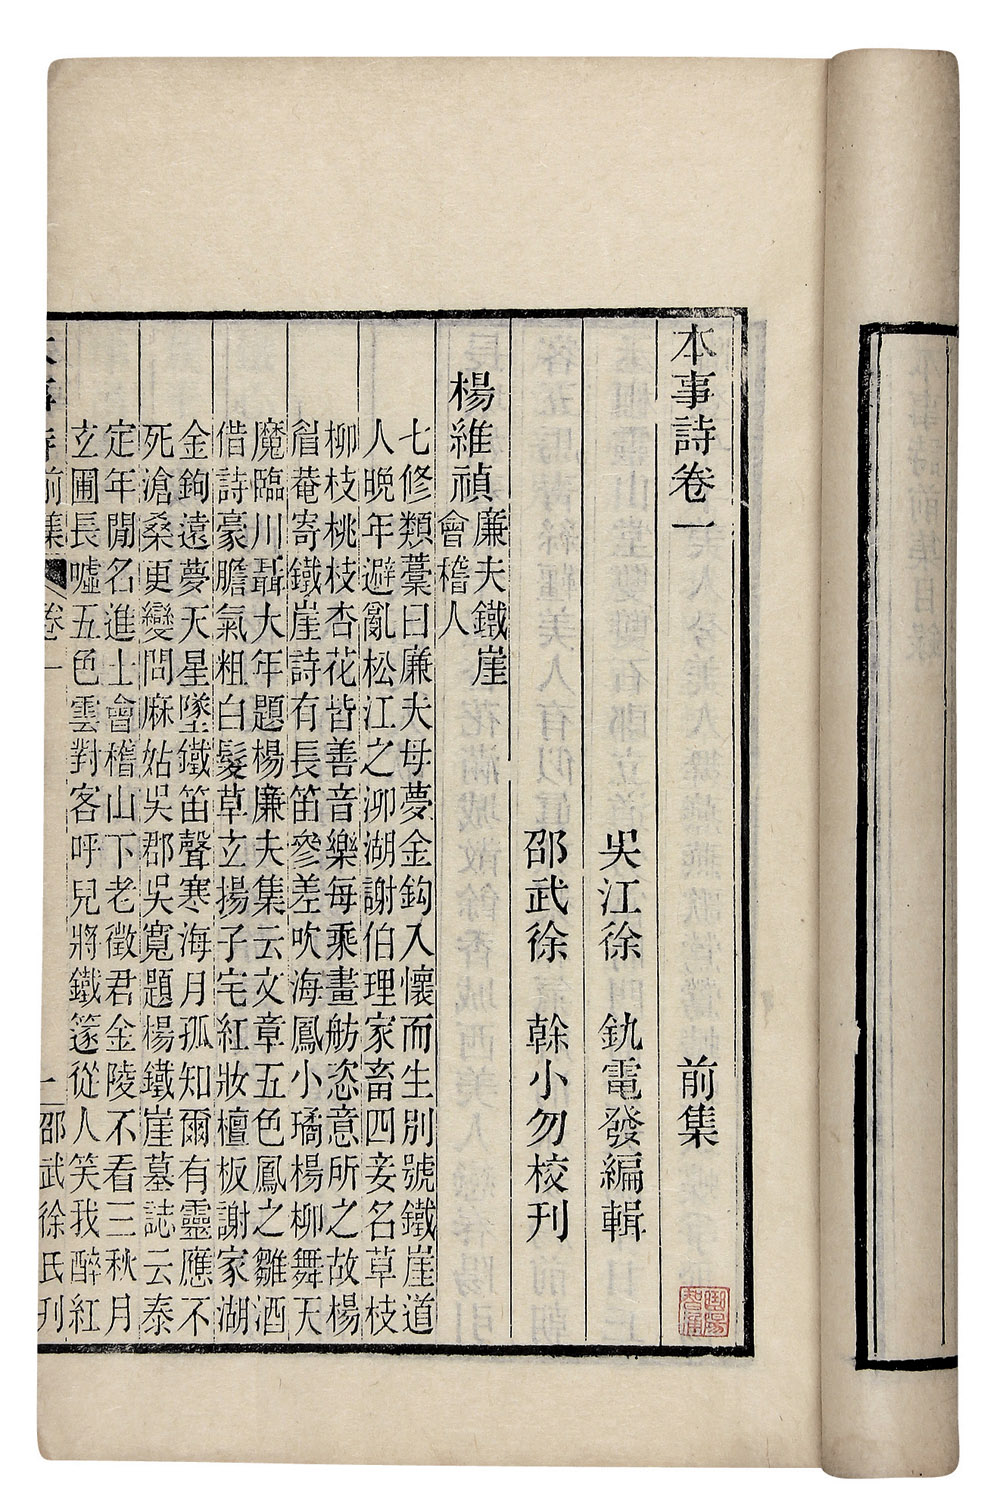 本事詩卷一
前集
吳江徐 釚電發編輯
邵武徐 榦小勿校刊
楊維禎 廉夫鐵崖
會稽人
七修類藳曰廉夫母夢金鈎入懷而生別號鐵崖道
人晚年避亂松江之泖湖謝伯理家畜四妾名草枝
柳枝桃枝杏花皆善音樂每乘畫舫恣意所之故楊
眉菴寄鐵崖詩有長笛參差吹海鳳小璚楊柳舞天
魔臨川聶大年題楊廉夫集云文章五色鳳之雛酒
借詩豪膽氣粗白髮草玄揚子宅紅妝檀板謝家湖
金鉤遠夢天星墜鐵笛聲寒海月孤知爾有靈應不
死滄桑更變問麻姑吳郡吳寬題楊鐵崖墓誌云泰
定年閒名進士會稽山下老徵君金陵不看三秋月
玄圃長噓五色雲對客呼兒將鐵篴從人笑我醉紅
本事詩前集 卷一 一 邵武徐氏刊